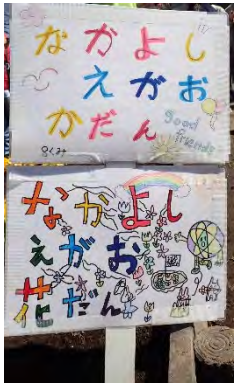 なかよし
えがお
かだん
good
friends
なかよし
えがお
花だん